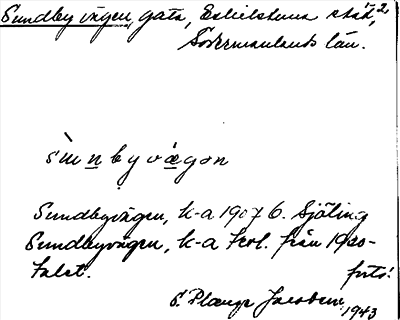 Sundbyvägen, gata, Eskilstuna stad,2
Södermanlands län.
sùnbyvægən
Sundbyvägen, k-a 1907 G. Sjöling
Sundbyvägen, k-a kol. från 1920-
talet. forts!
1943